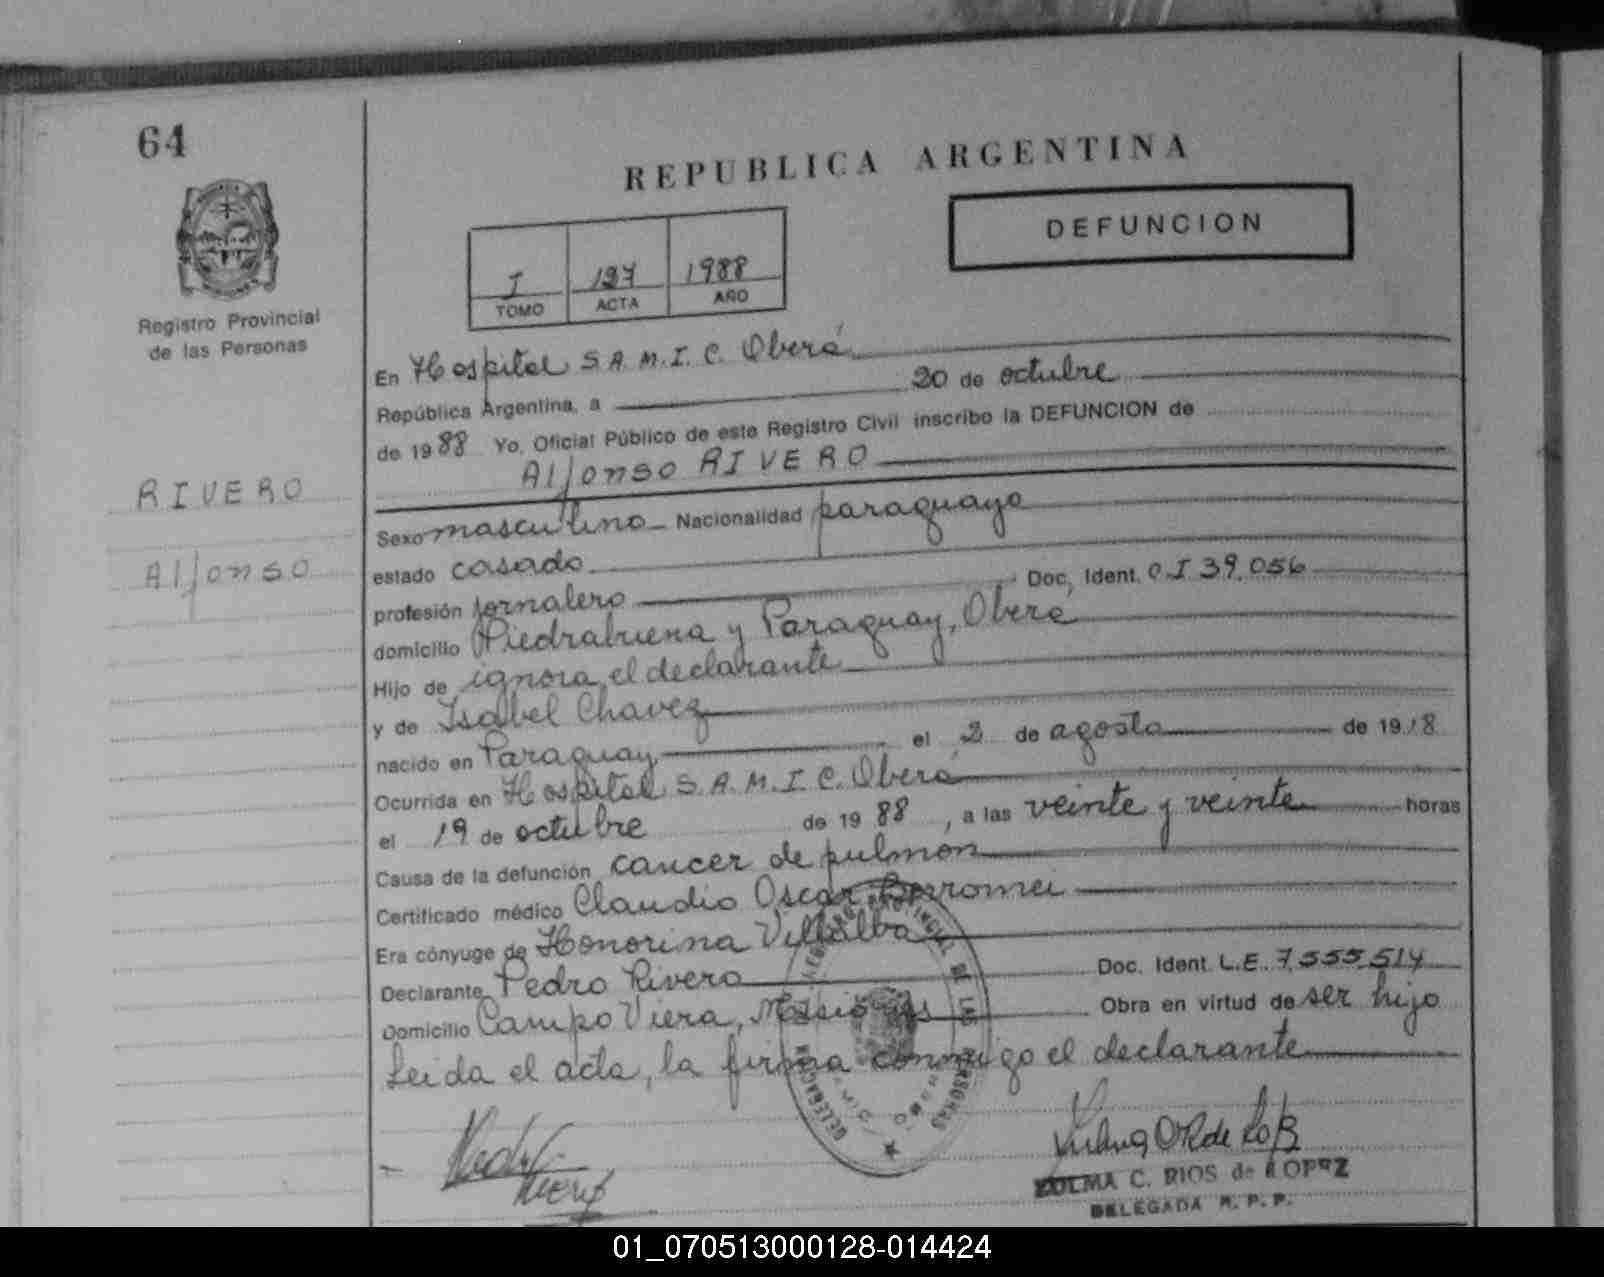 64
REPUBLICA ARGENTINA
DEFUNCION
I 127 1988
TOMO ACTA AÑO
Registro Provincial
de las Personas
En Hospital S.A.M.I.C. Oberá
República Argentina, a 20 de octubre
de 1988 Yo, Oficial Público de este Registro Civil inscribo la DEFUNCION de
Alfonso RIVERO
RIVERO
Alfonso
Sexo masculino Nacionalidad paraguayo
estado casado
profesión jornalero Doc. Ident. C.I 39.056
domicilio Piedrabuena y Paraguay, Obera
Hijo de ignora el declarante
y de Isabel Chavez
nacido en Paraguay el 2 de agosto de 1918
Ocurrida en Hospital S.A.M.I.C. Oberá
el 19 de octubre de 1988, a las veinte y veinte horas
Causa de la defunción cancer de pulmon
Certificado médico Claudio Oscar Borromei
Era cónyuge de Honorina Villalba
Declarante Pedro Rivero Doc. Ident. L.E. 7.555.514
Domicilio Campo Viera, Misiones Obra en virtud de ser hijo
Leida el acta, la firma conmigo el declarante
ZULMA C. RIOS de LOPEZ
DELEGADA R.P.P.
01_070513000128-014424